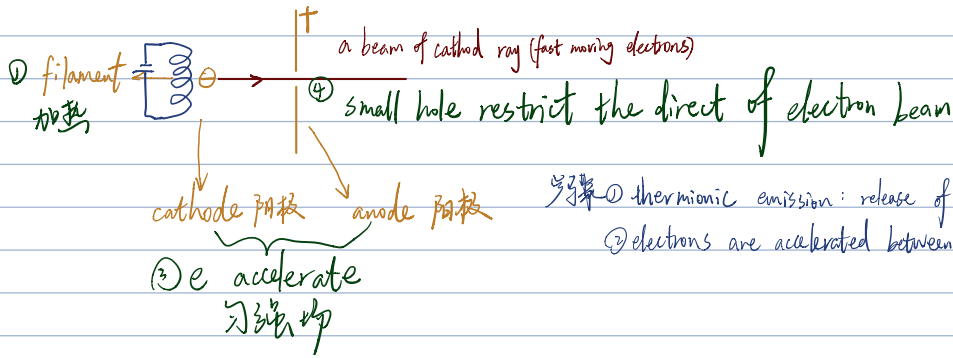 +
a beam of cathod ray (fast moving electrons)
① filament
加热
④ small hole restrict the direct of electron beam
cathode 阴极 anode 阳极
步骤① thermionic emission: release of
② electrons are accelerated between
③ e accelerate
匀强场